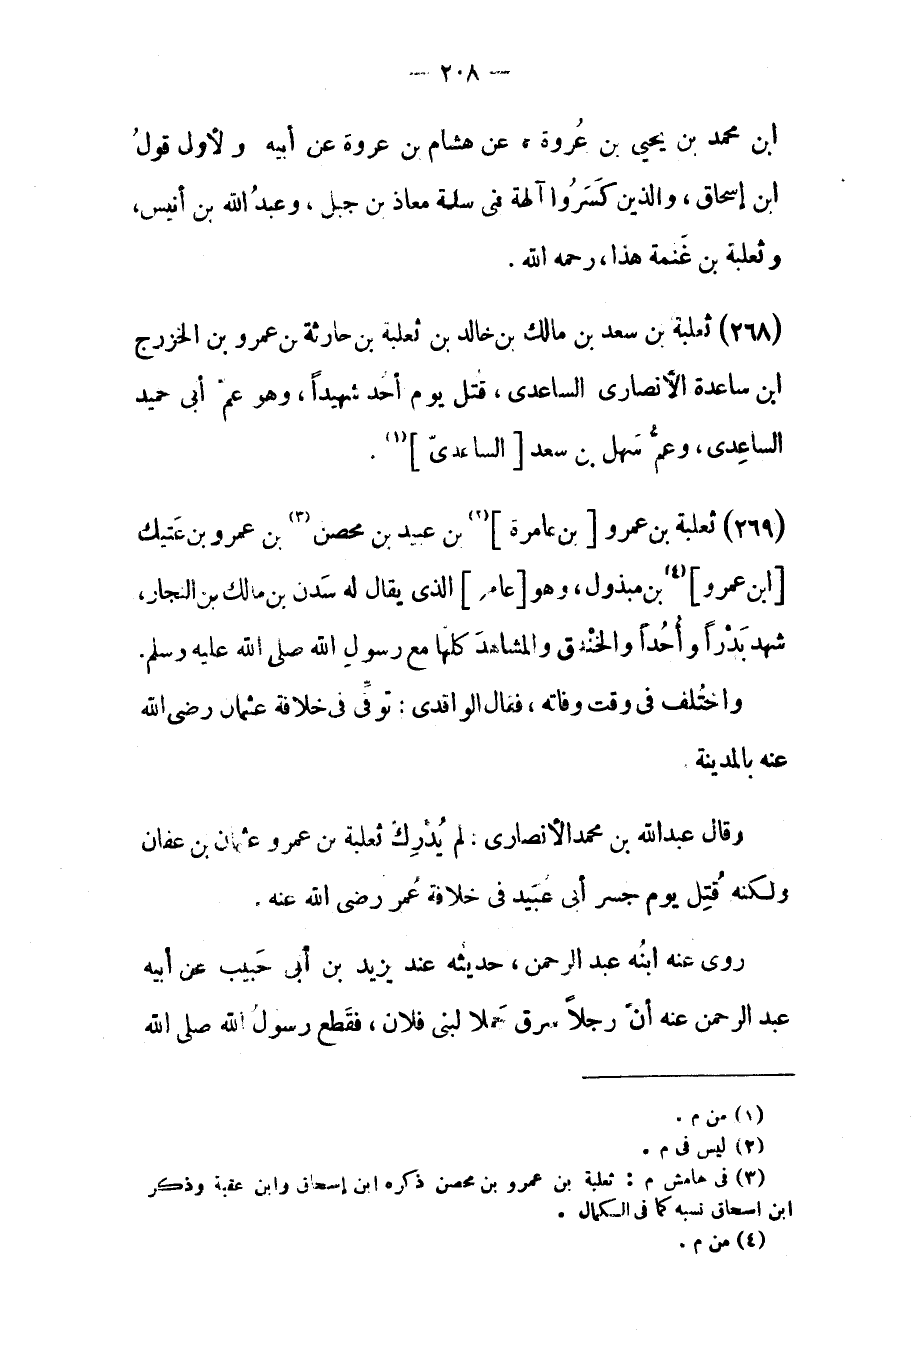 — ٢٠٨ —
ابن محمد بن يحيى بن عُروة ، عن هشام بن عروة عن أبيه والأول قولُ
ابن إسحاق ، والذين كَسَرُوا آلهة فى سلمة معاذ بن جبل ، وعبدُ الله بن أنيس،
وثعلبة بن غَنمة هذا ، رحمه الله .
(٢٦٨) ثعلبة بن سعد بن مالك بن خالد بن ثعلبة بن حارثة بن عمرو بن الخزرج
ابن ساعدة الأنصارى الساعدى ، قُتل يوم أحُد شهيداً ، وهو عمّ أبى حميد
الساعِدى ، وعمُّ سَهل بن سعد [ الساعدىّ ](١) .
(٢٦٩) ثعلبة بن عمرو [ بن عامرة ](٢) بن عبيد بن محصن(٣) بن عمرو بن عَتيك
[ابن عمرو](٤) بن مبذول ، وهو [عامر] الذى يقال له سَدن بن مالك بن النجار،
شهد بَدْراً وأُحُداً والخنْدق والمشاهدَ كلّها مع رسولِ الله صلى الله عليه وسلم.
واختُلف فى وقت وفاته ، فقال الواقدى : توفِّى فى خلافة عثمان رضى الله
عنه بالمدينة .
وقال عبد الله بن محمد الأنصارى : لم يُدْرِكْ ثعلبة بن عمرو عثمان بن عفان
ولكنه قُتِل يوم جسر أبى عُبَيد فى خلافة عُمر رضى الله عنه .
روى عنه ابنُه عبد الرحمن ، حديثه عند يزيد بن أبى حَبيب عن أبيه
عبد الرحمن عنه أنّ رجلاً سرق جَملا لبنى فلان ، فقَطع رسولُ الله صلى الله
(١) من م .
(٢) ليس فى م .
(٣) فى هامش م : ثعلبة بن عمرو بن محصن ذكره ابن إسحاق وابن عقبة وذكر
ابن اسحاق نسبه كما فى الكمال .
(٤) من م .